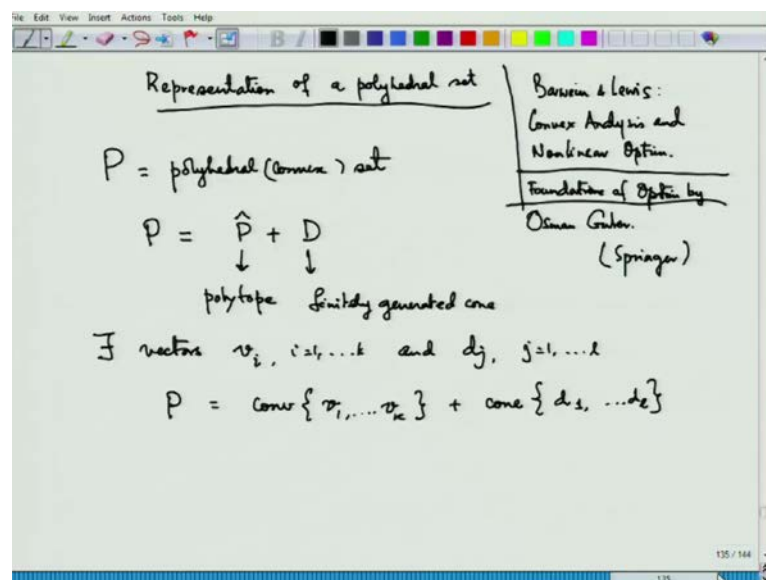 File Edit View Insert Actions Tools Help
Representation of a polyhedral set
Borwein & Lewis:
Convex Analysis and
Nonlinear Optim.
Foundations of Optim by
Osman Guler.
(Springer)
P = polyhedral (convex) set
P = P̂ + D
↓ ↓
polytope finitely generated cone
∃ vectors v_i, i=1,...k and dj, j=1,...l
P = conv { v_1,....v_k } + cone { d_1, ...d_l }
135 / 144
135